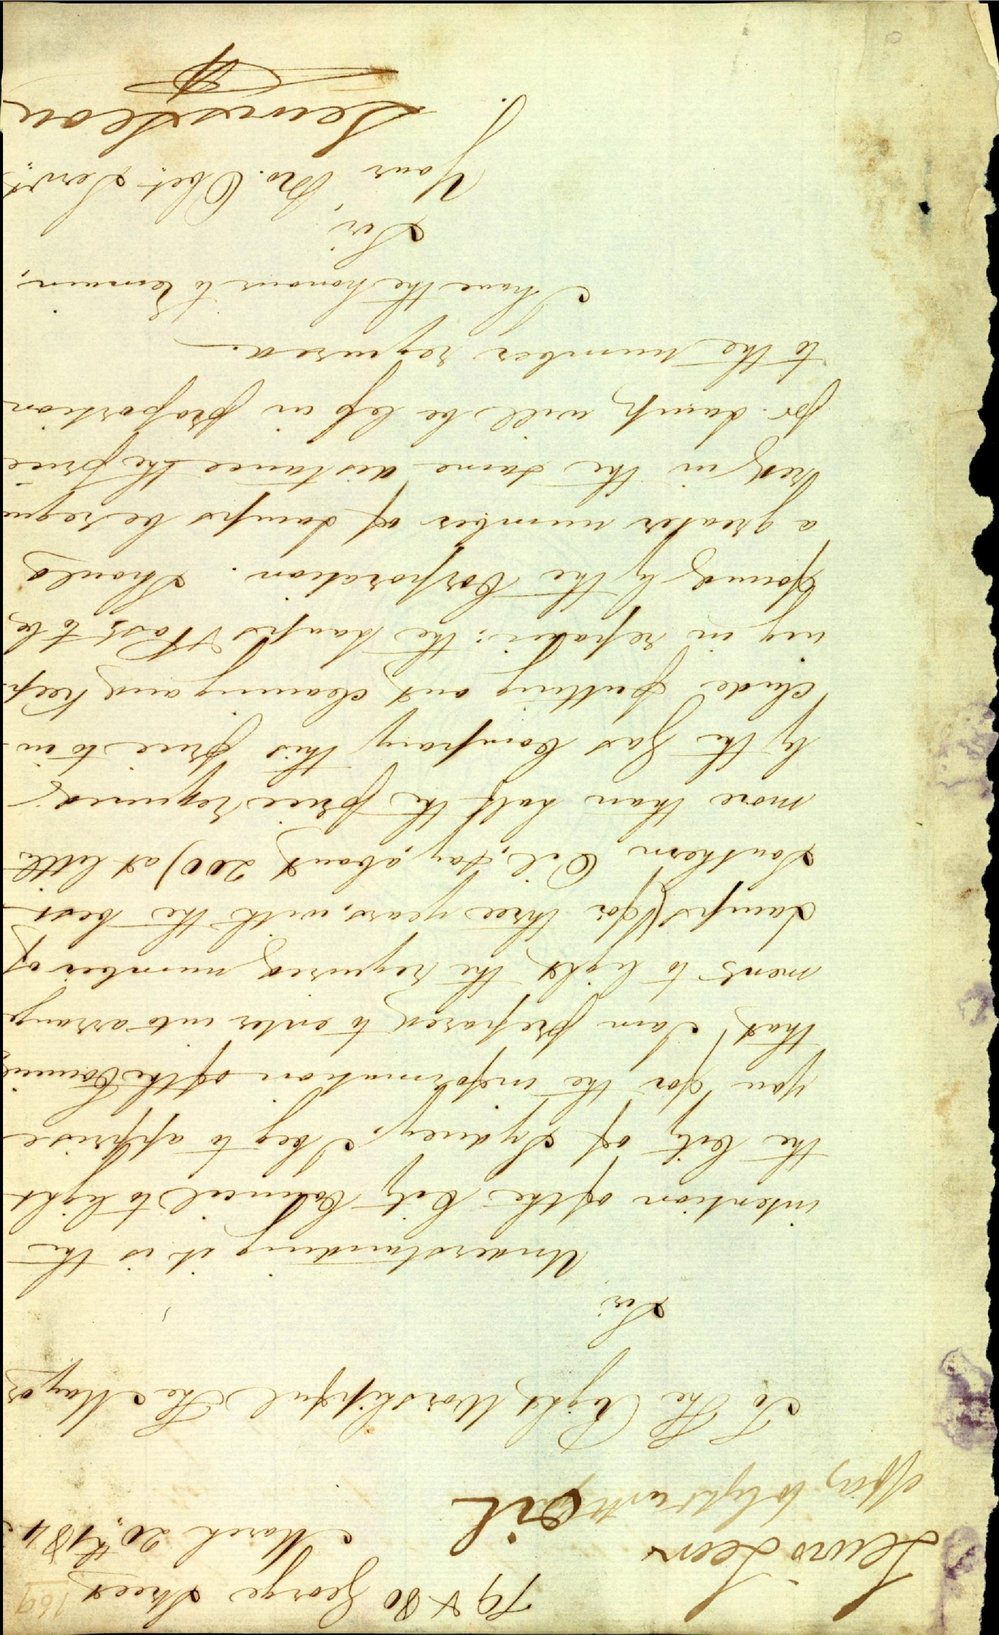 169
79 & 80 George Street
March 20th, 184
Lewis Leon
offering to light with Oil
To The Right Worshipful The Mayor
Sir
Understanding it is the
intention of the City Council to light
the City of Sydney, I beg to apprise
you for the information of the Council
that I am prepared to enter into arrange
ment to light the required number of
Lamps (for three years, with the best
Southern Oil, say, about 200) at little
more than half the price required
by the Gas Company this price to in-
clude putting out cleaning and keep-
ing in repair: the Lamps & Posts to be
found by the Corporation. Should
a greater number of Lamps be requi
red in the same distance the price
pr. Lamp, will be less in proportion
to the number required.—
I have the honour to remain,
Sir,
Your Mo. Obet. Servt.
Lewis Leon